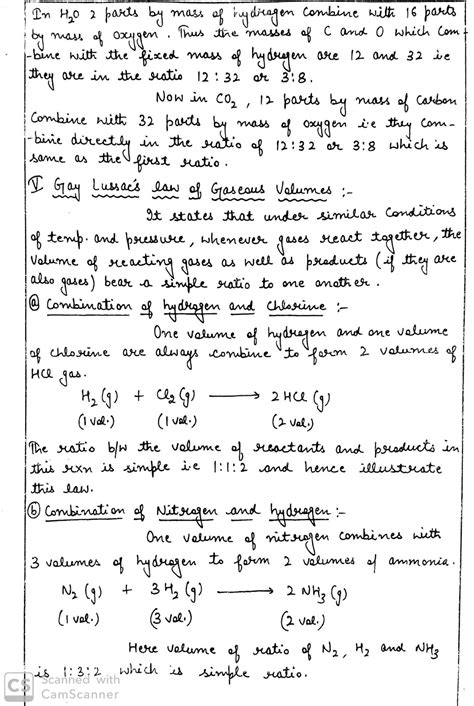 In H₂O 2 parts by mass of hydrogen combine with 16 parts
by mass of oxygen. Thus the masses of C and O which com-
-bine with the fixed mass of hydrogen are 12 and 32 ie
they are in the ratio 12:32 or 3:8.
Now in CO₂, 12 parts by mass of carbon
combine with 32 parts by mass of oxygen i.e they com-
-bine directly in the ratio of 12:32 or 3:8 which is
same as the first ratio.
V Gay Lussac's law of Gaseous Volumes :-
It states that under similar conditions
of temp. and pressure, whenever gases react together, the
volume of reacting gases as well as products (if they are
also gases) bear a simple ratio to one another.
ⓐ Combination of hydrogen and Chlorine :-
One volume of hydrogen and one volume
of chlorine are always combine to form 2 volumes of
HCl gas.
H₂(g) + Cl₂(g) ⟶ 2HCl(g)
(1 vol.) (1 vol.) (2 vol.)
The ratio b/w the volume of reactants and products in
this rxn is simple i.e 1:1:2 and hence illustrate
this law.
ⓑ Combination of Nitrogen and hydrogen :-
One volume of nitrogen combines with
3 volumes of hydrogen to form 2 volumes of ammonia.
N₂(g) + 3H₂(g) ⟶ 2NH₃(g)
(1 vol.) (3 vol.) (2 vol.)
Here volume of ratio of N₂, H₂ and NH₃
is 1:3:2 which is simple ratio.
CS Scanned with
CamScanner